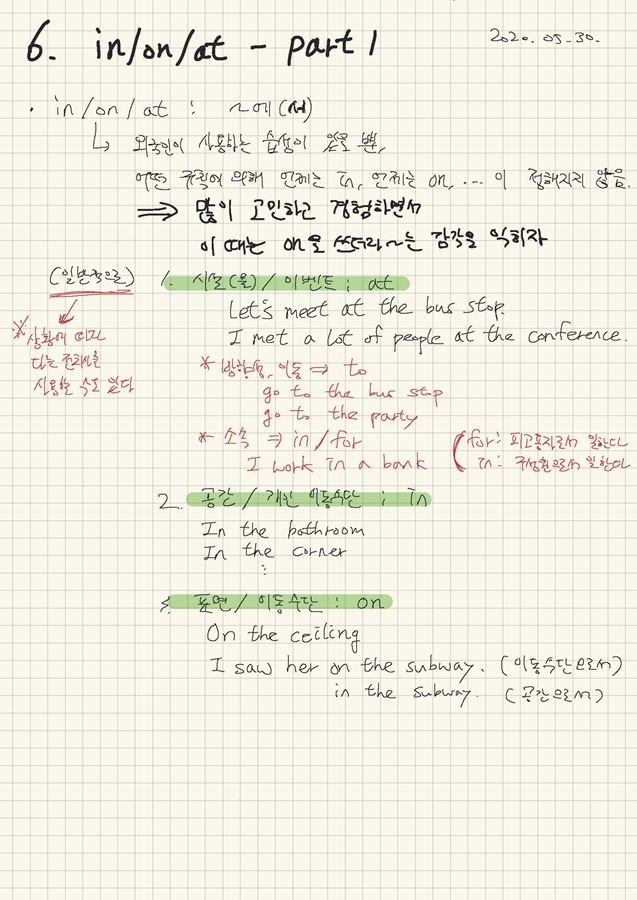 6. in/on/at - part 1
2020. 05. 30.
· in/on/at : ~에(서)
↳ 외국인이 사용하는 습성이 있을 뿐,
어떤 규칙에 의해 언제는 in, 언제는 on, ... 이 정해지지 않음.
⇒ 많이 고민하고 경험하면서
이 때는 on을 쓰더라~는 감각을 익히자
(일반적으로)
※ 상황에 따라
다른 전치사를
사용할 수도 있다
1. 시설(물) / 이벤트 : at
Let's meet at the bus stop.
I met a lot of people at the conference.
* 방향성, 이동 ⇒ to
go to the bus stop
go to the party
* 소속 ⇒ in / for
I work in a bank
for : 피고용자로서 일한다
in : 구성원으로서 일한다
2. 공간 / 개인 이동수단 : in
In the bathroom
In the corner
⋮
3. 표면 / 이동수단 : on
On the ceiling
I saw her on the subway. (이동수단으로서)
in the subway. (공간으로서)